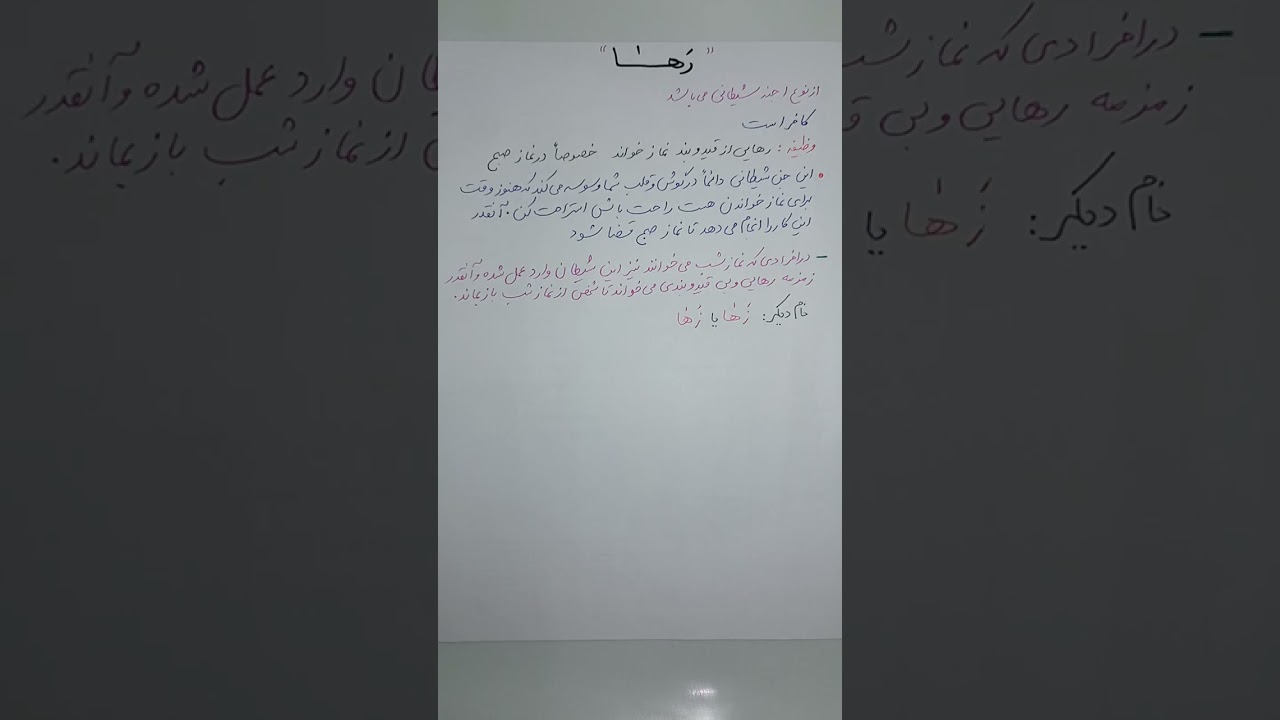 "رَهـٰـا"
از نوع اجنه شیطانی می باشد
کافر است
وظیفه : رهایی از قید و بند نماز خواند خصوصاً در نماز صبح
این جن شیطانی دائماً در گوش و قلب شما وسوسه می کند که هنوز وقت
برای نماز خواندن هست راحت باش استراحت کن . آنقدر
این کار را انجام می دهد تا نماز صبح قضا شود
- در افرادی که نماز شب می خوانند نیز این شیطان وارد عمل شده و آنقدر
زمزمه رهایی و بی قید و بندی می خواند تا شخص از نماز شب باز بماند.
نام دیگر: زَهٰا یا زُهٰا
- در افرادی که نماز شب
زمزمه رهایی و بی
نام دیگر: زَهٰا یا
وارد عمل شده و آنقدر
از نماز شب باز بماند.